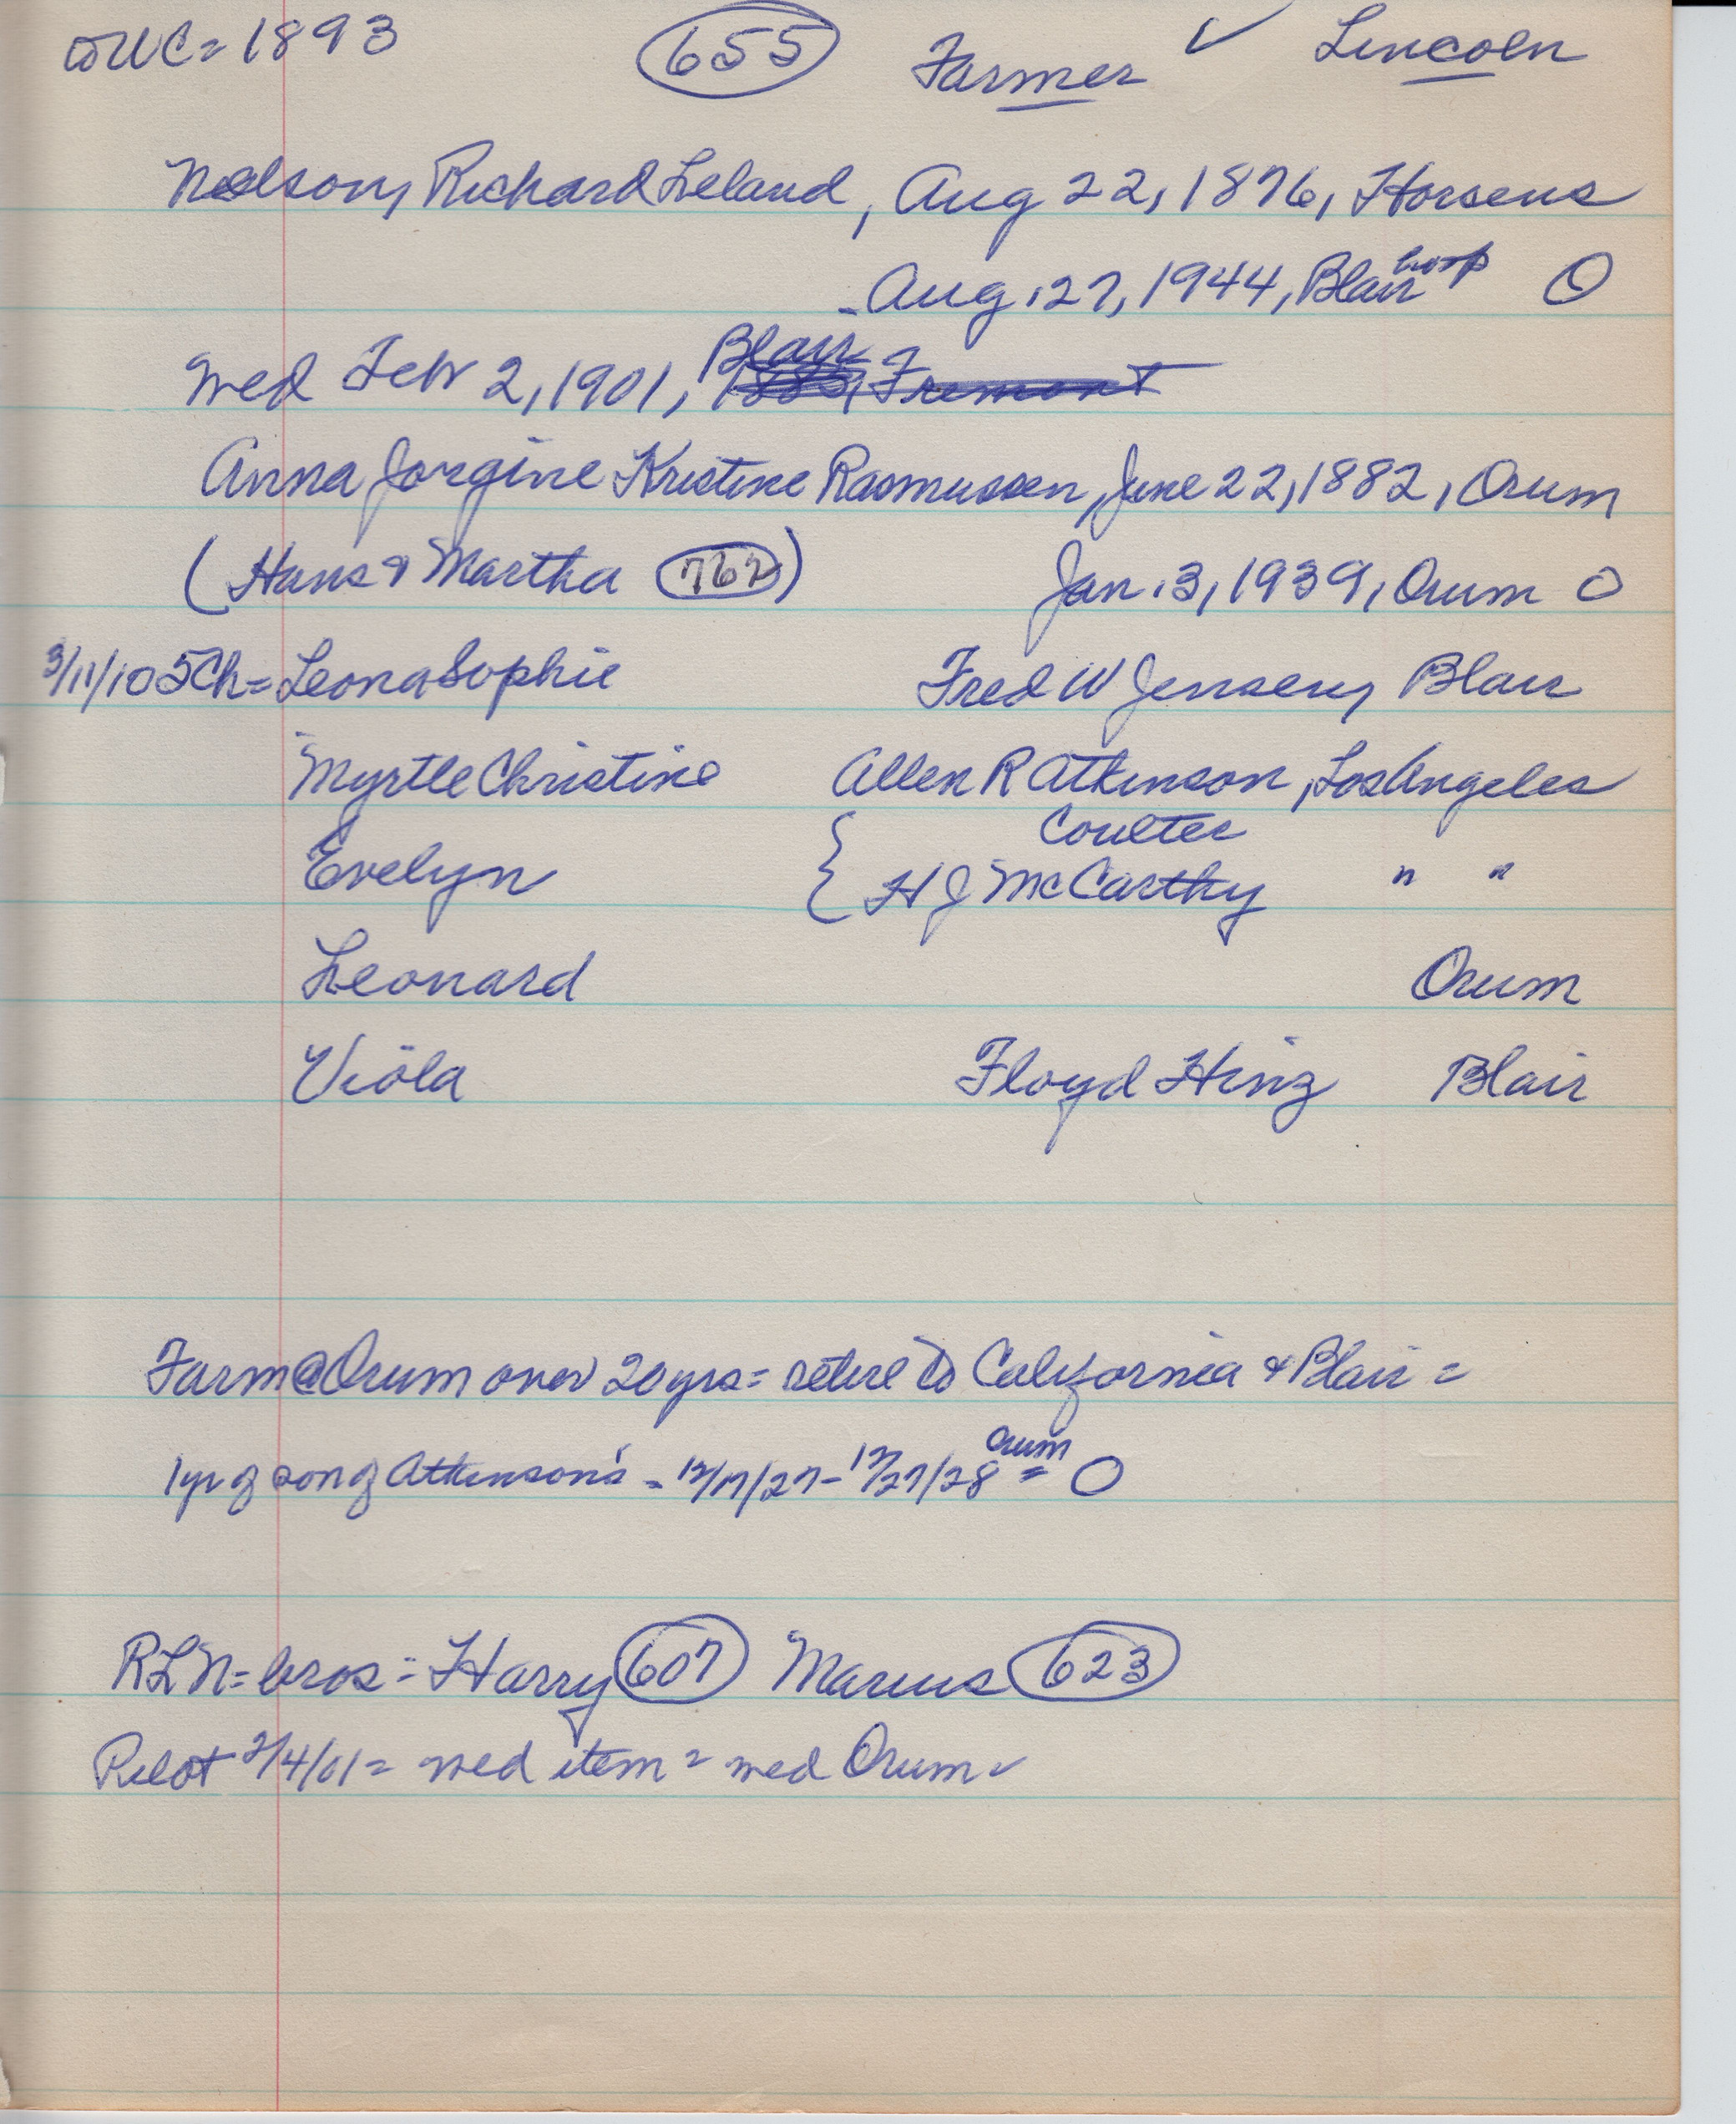 toWC = 1893 (655) Farmer ✓ Lincoln
Nelson, Richard Leland, Aug 22, 1876, Horsens
- Aug. 27, 1944, Blair hosp O
wed Feb 2, 1901, Blair Fremont
Anna Jorgine Kristine Rasmussen, June 22, 1882, Orum
(Hans & Martha (762)) Jan. 3, 1939, Orum O
3/11/10 5Ch = Leona Sophie Fred W Jensen, Blair
Myrtle Christine Allen R Atkinson, Los Angeles
Coulter
Evelyn { H J McCarthy " "
Leonard Orum
Viola Floyd Hinz Blair
Farm @ Orum over 20 yrs = retire to California & Blair =
1 yr of son of Atkinson's - 12/17/27 - 12/27/28 = Orum O
RLN = bros = Harry (607) Marius (623)
Pilot 2/4/01 = wed item = wed Orum =